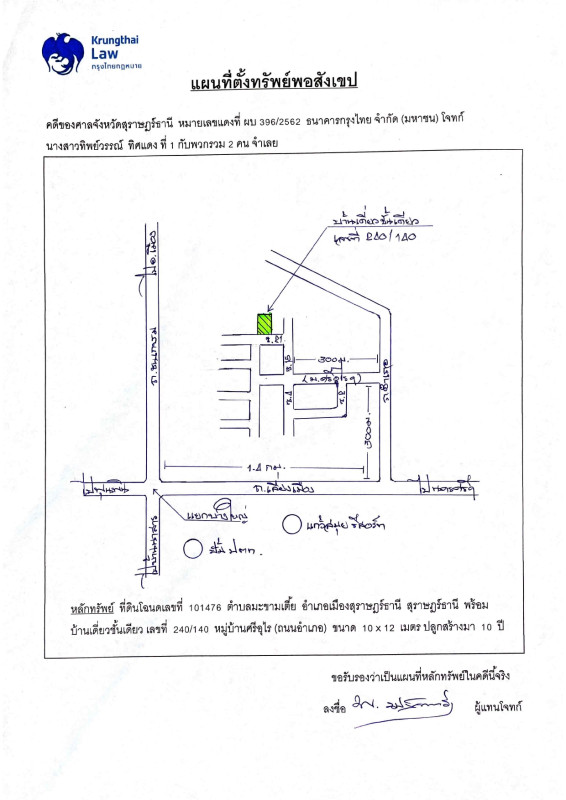 Krungthai
Law
กรุงไทยกฎหมาย
แผนที่ตั้งทรัพย์พอสังเขป
คดีของศาลจังหวัดสุราษฎร์ธานี หมายเลขแดงที่ ผบ 396/2562 ธนาคารกรุงไทย จำกัด (มหาชน) โจทก์
นางสาวทิพย์วรรณ์ ทิศแดง ที่ 1 กับพวกรวม 2 คน จำเลย
บ้านเดี่ยวชั้นเดียว
เลขที่ 240/140
ไป อ.เมือง
300 ม.
(ม.ศรีอุไร)
300 ม.
1.4 กม.
ไปพุนพิน
ถ.เลี่ยงเมือง
แยกบางใหญ่
ไปบ้านนาสาร
ปั๊ม ปตท.
หลักทรัพย์ ที่ดินโฉนดเลขที่ 101476 ตำบลมะขามเตี้ย อำเภอเมืองสุราษฎร์ธานี สุราษฎร์ธานี พร้อม
บ้านเดี่ยวชั้นเดียว เลขที่ 240/140 หมู่บ้านศรีอุไร (ถนนอำเภอ) ขนาด 10 x 12 เมตร ปลูกสร้างมา 10 ปี
ขอรับรองว่าเป็นแผนที่หลักทรัพย์ในคดีนี้จริง
ลงชื่อ ผู้แทนโจทก์